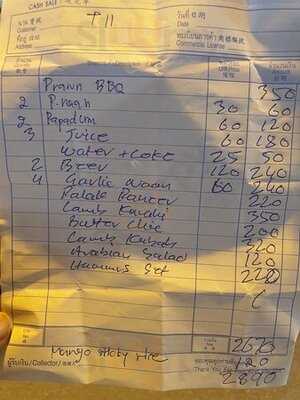 CASH SALE
T11
นามลูกค้า
Customer
ที่อยู่
Address
วันที่
Date
ทะเบียนการค้า
Commercial License
Prawn BBQ 350
2 P. naan 30 60
2 Papadum 60 120
3 Juice 60 180
Water + Coke 25 50
2 Beer 120 240
4 Garlic naan 60 240
Palak Paneer 220
Lamb Karahi 350
Butter Chic 200
Lamb Kabab 320
Arabian Salad 120
Hummus Set 220
2670
Mango sticky rice 120
ผู้รับเงิน/Collector
2890